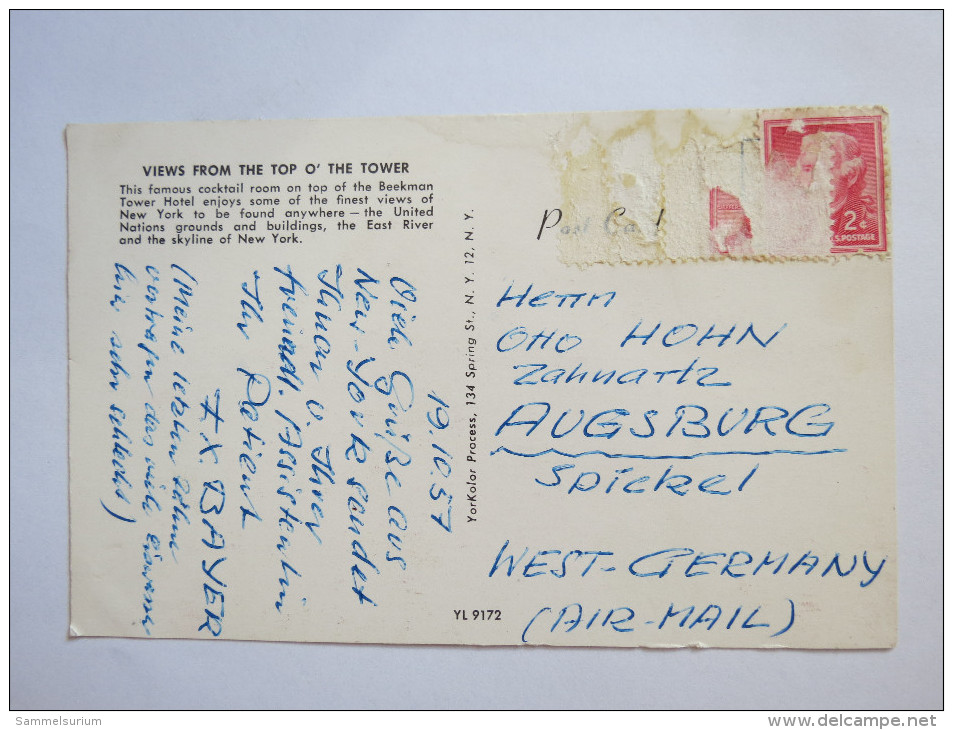 VIEWS FROM THE TOP O' THE TOWER
This famous cocktail room on top of the Beekman
Tower Hotel enjoys some of the finest views of
New York to be found anywhere — the United
Nations grounds and buildings, the East River
and the skyline of New York.
19.10.57
Viele Grüße aus
New-York sendet
Ihnen u. Ihrer
freundl. Assistentin
Ihr Patient
F.X. BAYER
(Meine letzten Zähne
vertragen das viele
hier sehr schlecht)
YorKolor Process, 134 Spring St., N. Y. 12, N. Y.
YL 9172
Post Card
2¢
U.S. POSTAGE
Herrn
Otto HOHN
Zahnartz
AUGSBURG
Spickel
WEST-GERMANY
(AIR-MAIL)
Sammelsurium
www.delcampe.net